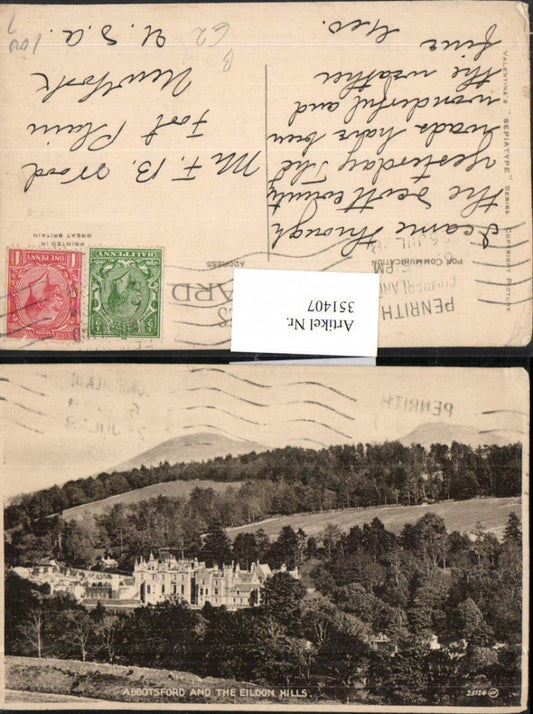 VALENTINE'S "SEPIATYPE" SERIES COPYRIGHT PICTURE
FOR COMMUNICATION
ADDRESS
PRINTED IN
GREAT BRITAIN
I came through
the Scott county
yesterday. The
roads have been
wonderful and
the weather
fine Geo.
Mr F. B. Wood
Fort Plain
New York
U.S.a.
B
62
PENRITH
CUMBERLAND
JUL
PM
ONE PENNY
1
HALFPENNY
Artikel Nr.
351407
PENRITH
ABBOTSFORD AND THE EILDON HILLS.